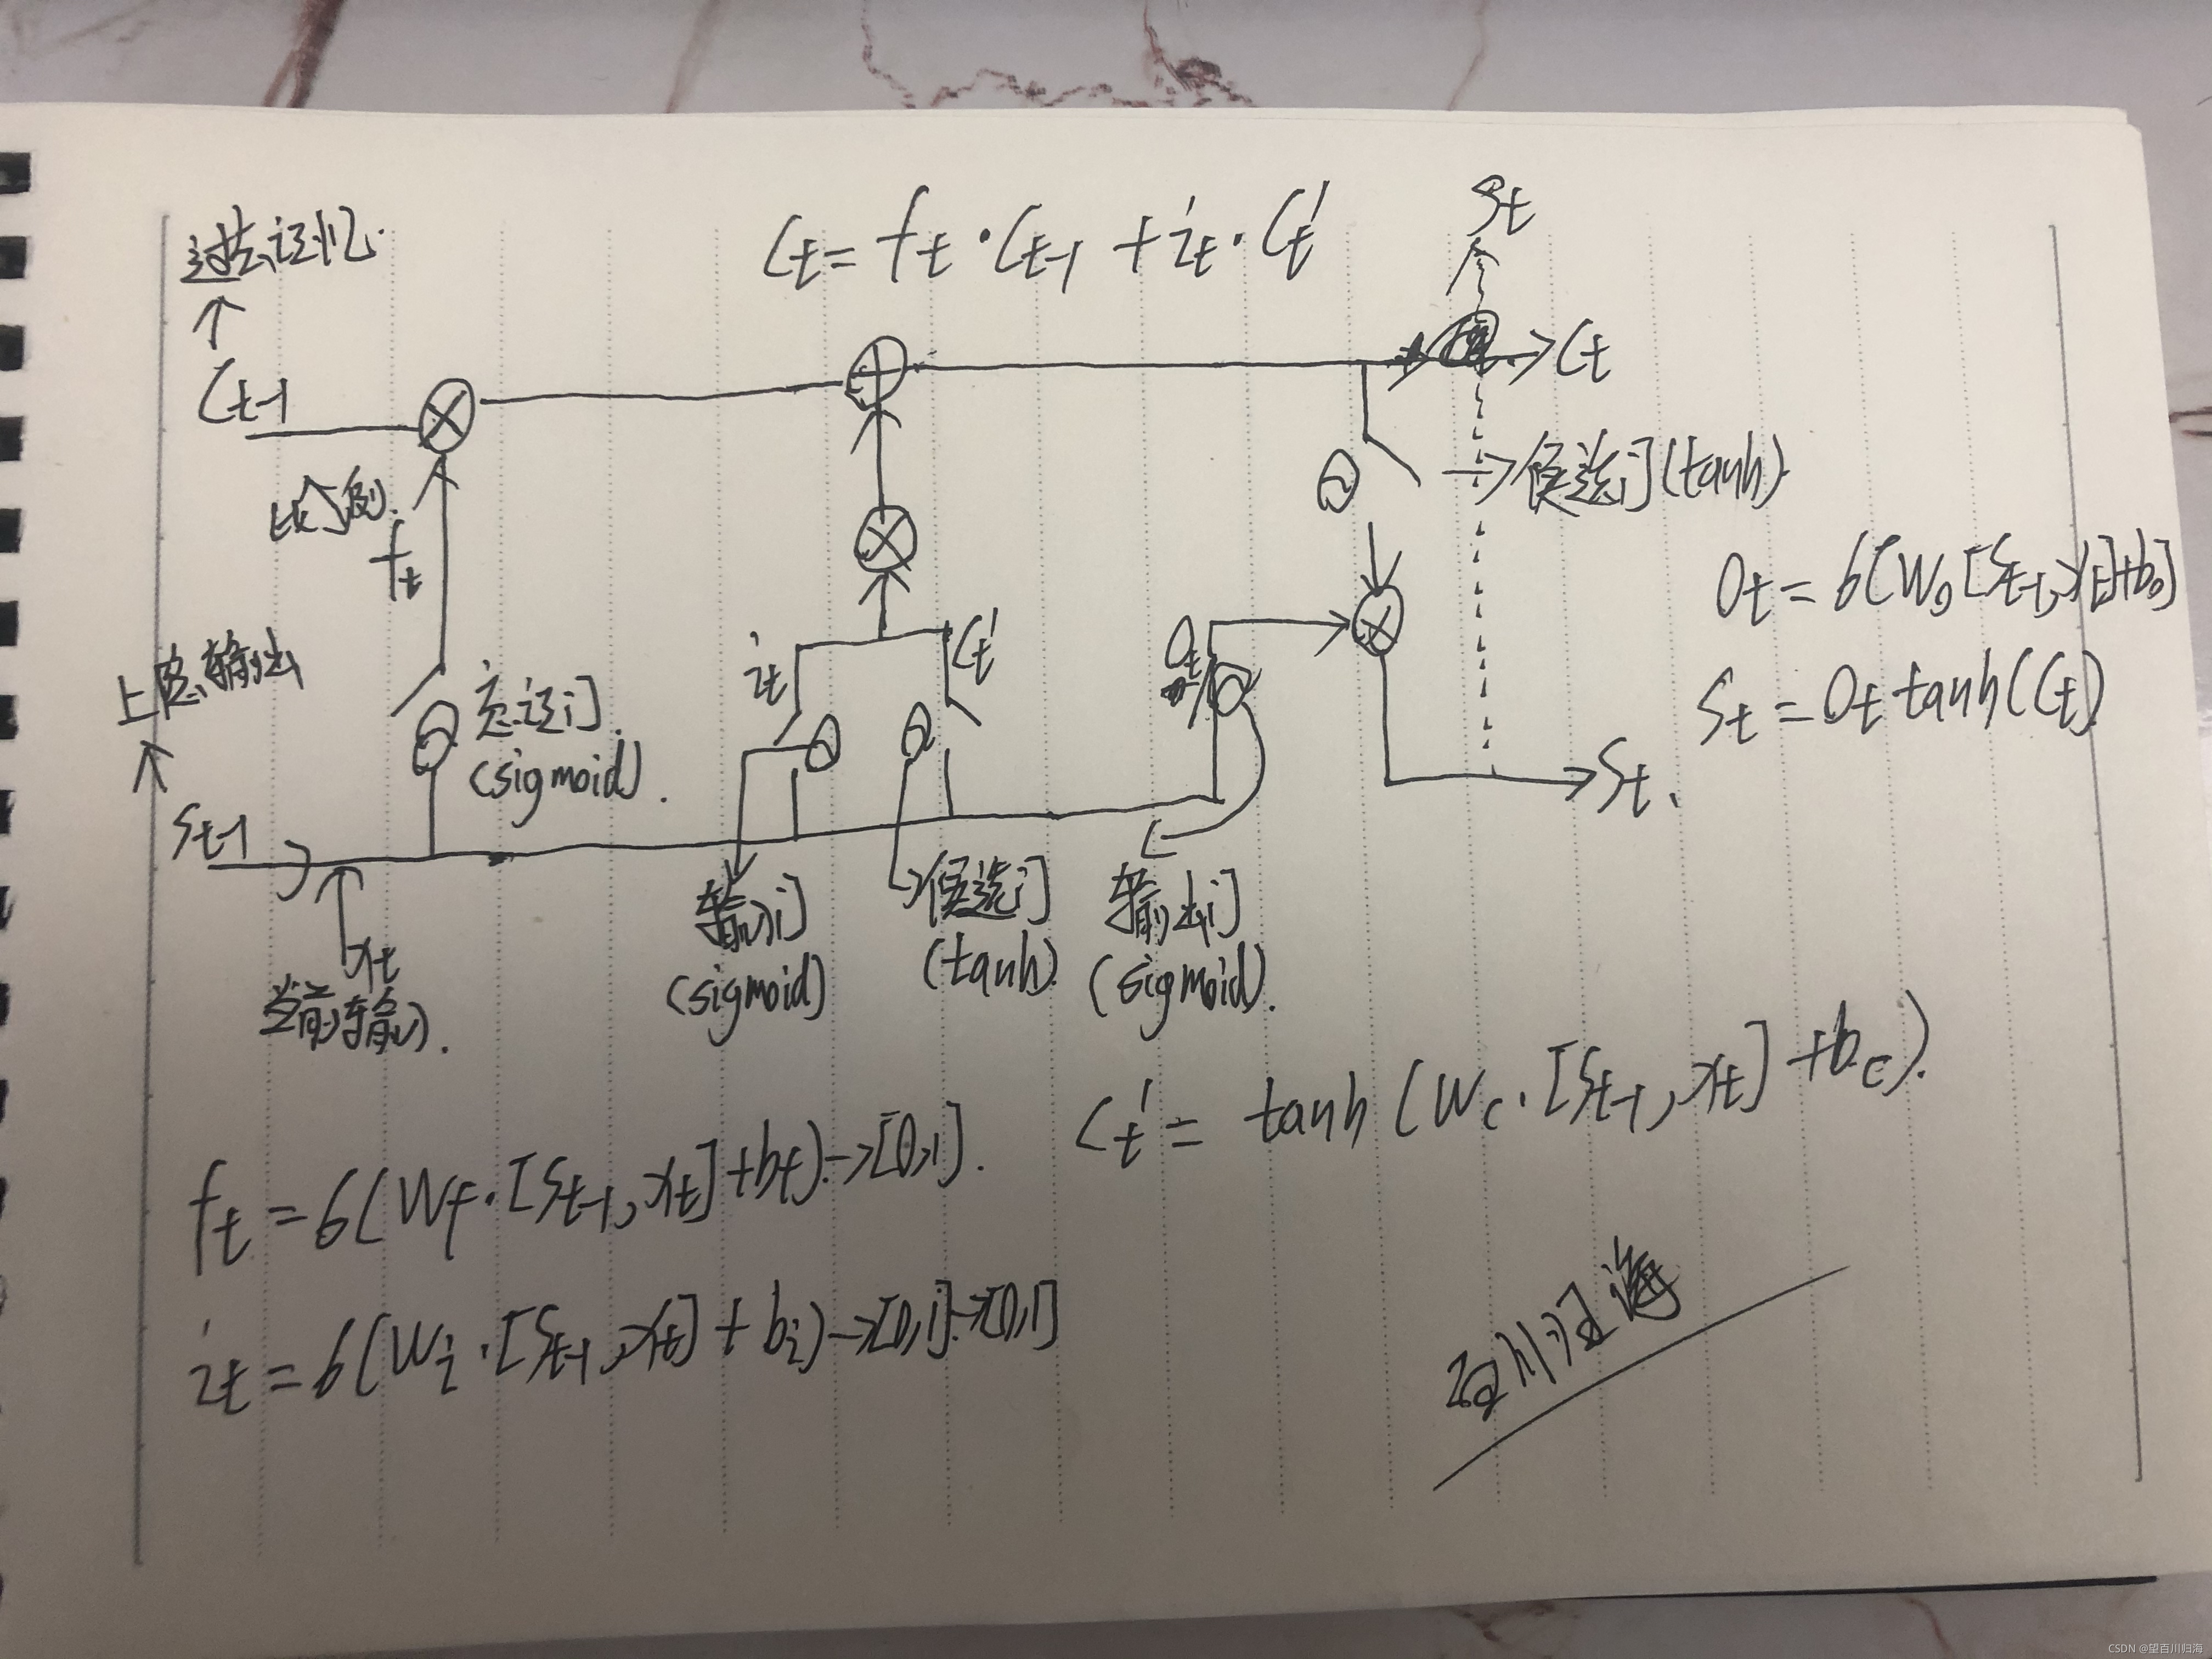 过去记忆.
Ct-1
Ct = ft · Ct-1 + it · Ct'
St
Ct
比例.
ft
→候选门(tanh)
Ot = σ(Wo[St-1, xt]+bo)
St = Ot tanh(Ct)
上层输出
忘记门.
(sigmoid).
it
Ct'
Ot
St.
St-1
xt
当前输入.
输入门
(sigmoid)
候选门
(tanh).
输出门
(sigmoid).
Ct' = tanh(Wc·[St-1, xt] + bc).
ft = σ(Wf·[St-1, xt] + bf) → [0,1].
it = σ(Wi·[St-1, xt] + bi) → [0,1] → [0,1]
百川归海
CSDN @望百川归海